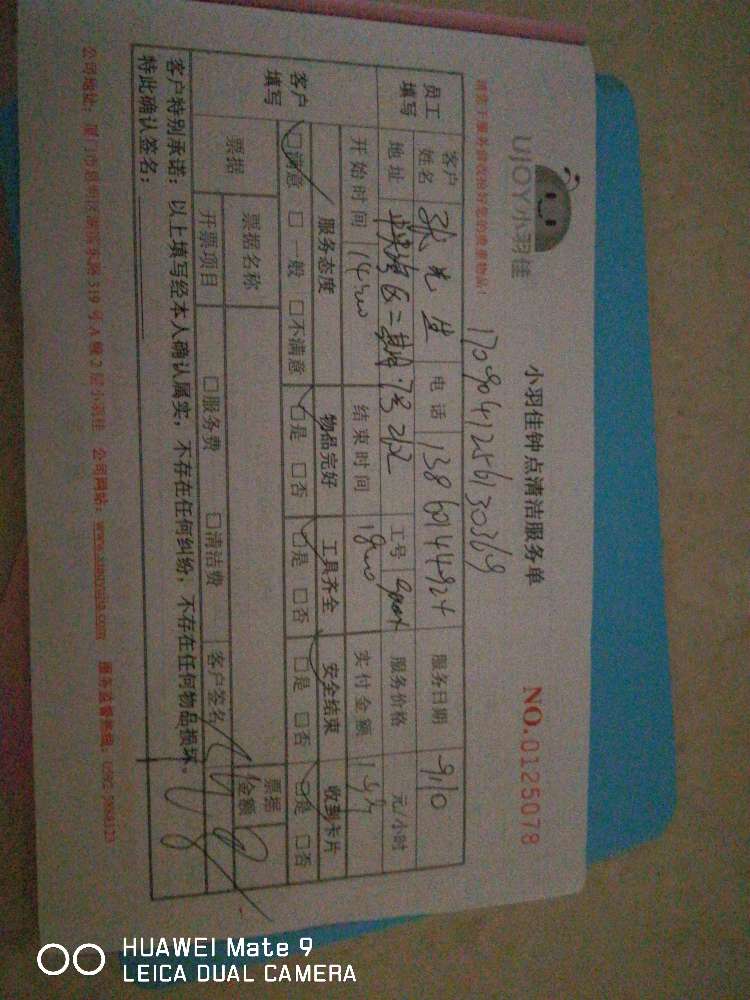 UJOY小羽佳
小羽佳钟点清洁服务单
NO.0125078
请客下服务前收拾好您的贵重物品！
1709041256130369
员工填写
客户姓名 张先生 电话 13860144924 服务日期 9/10
地址 二期 工号 服务价格 元/小时
开始时间 14:00 结束时间 18:00 实付金额
客户填写
服务态度 物品完好 工具齐全 安全结束 收到卡片
□满意 □一般 □不满意 □是 □否 □是 □否 □是 □否 □是 □否
票据 票据名称 票据金额
开票项目 □服务费 □清洁费 客户签名
客户特别承诺：以上填写经本人确认属实，不存在任何纠纷，不存在任何物品损坏。
特此确认签名：
公司地址：厦门市思明区湖滨东路319号A幢2层小羽佳 公司网站：www.xiaoyujia.com 服务监督热线：0592-5988123
HUAWEI Mate 9
LEICA DUAL CAMERA